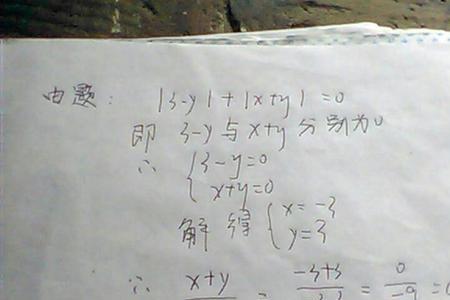 由题: |3-y|+|x+y|=0
即 3-y与x+y分别为0
∴ {3-y=0
x+y=0
解得 {x=-3
y=3
∴ x+y = -3+3 = 0 =0